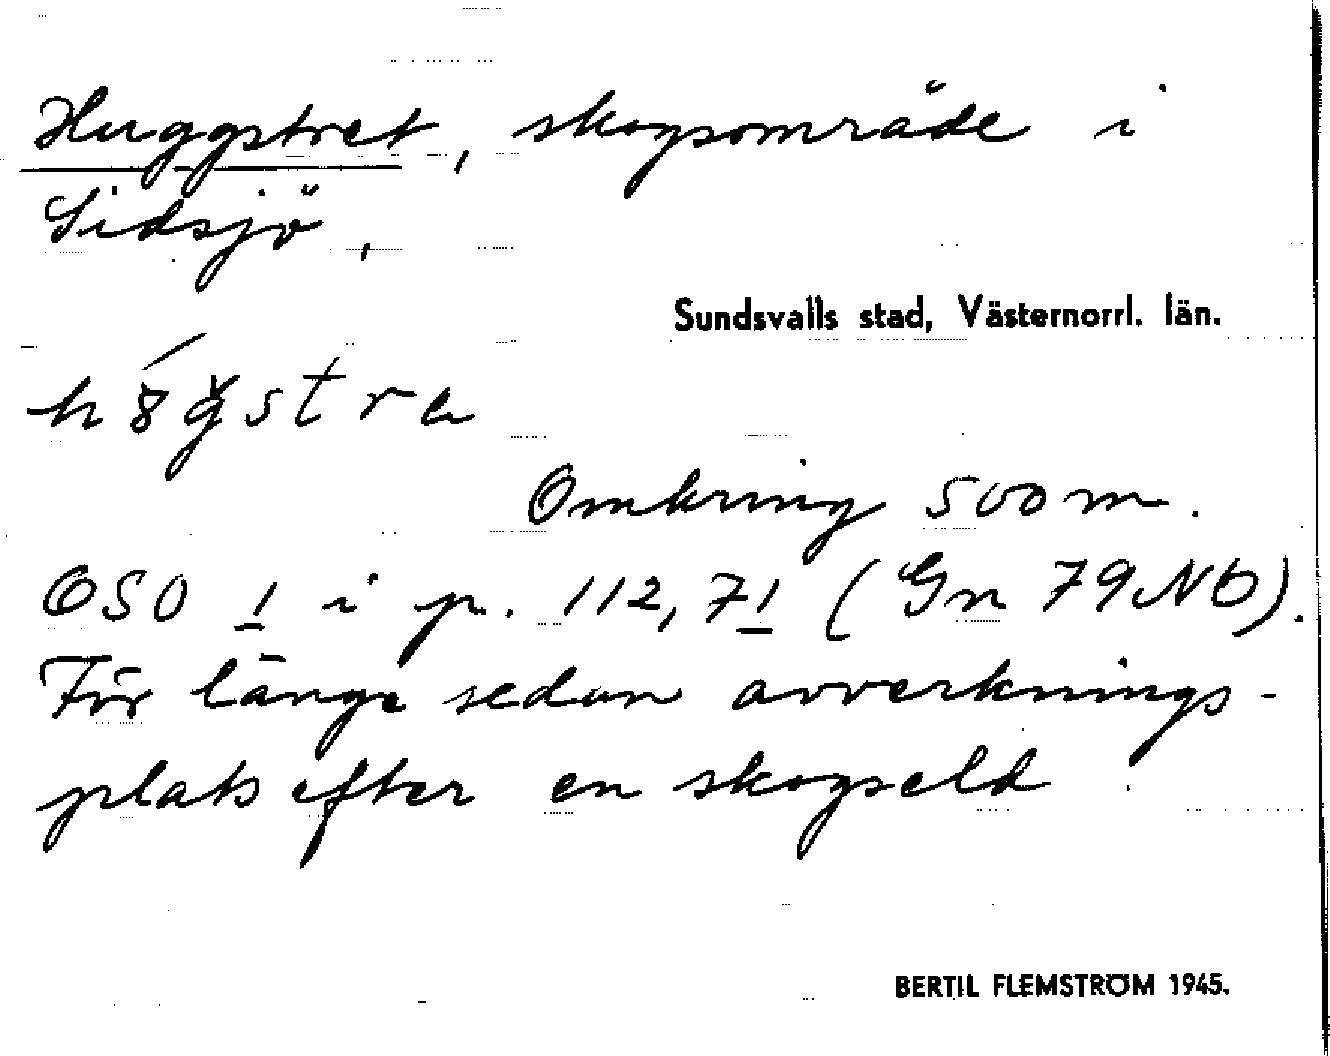 Huggstret, skogsområde i
Sidsjö,
Sundsvalls stad, Västernorrl. län.
Omkring 500 m.
OSO 1 i p. 112,71 (Gn 79NO).
För länge sedan avverknings-
plats efter en skogseld.
BERTIL FLEMSTRÖM 1945.